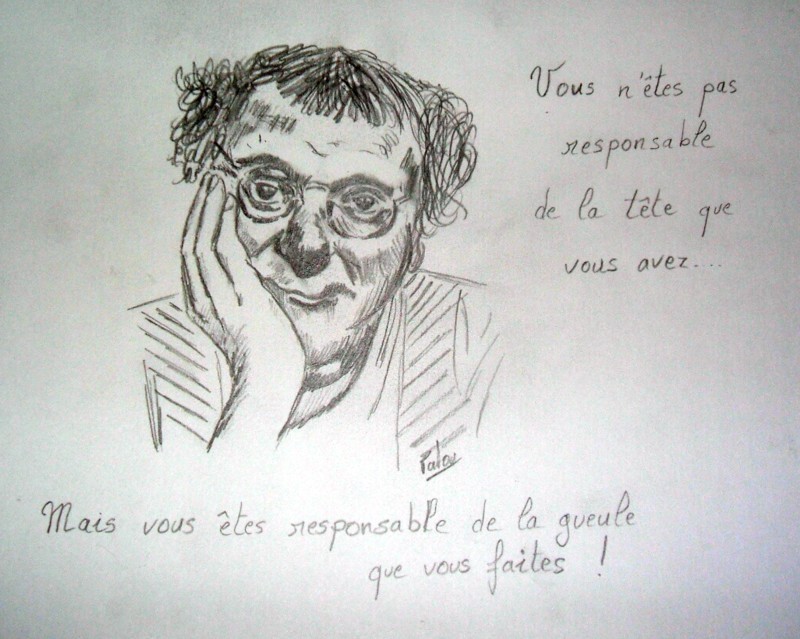 Vous n'êtes pas
responsable
de la tête que
vous avez....
Palou
Mais vous êtes responsable de la gueule
que vous faites !